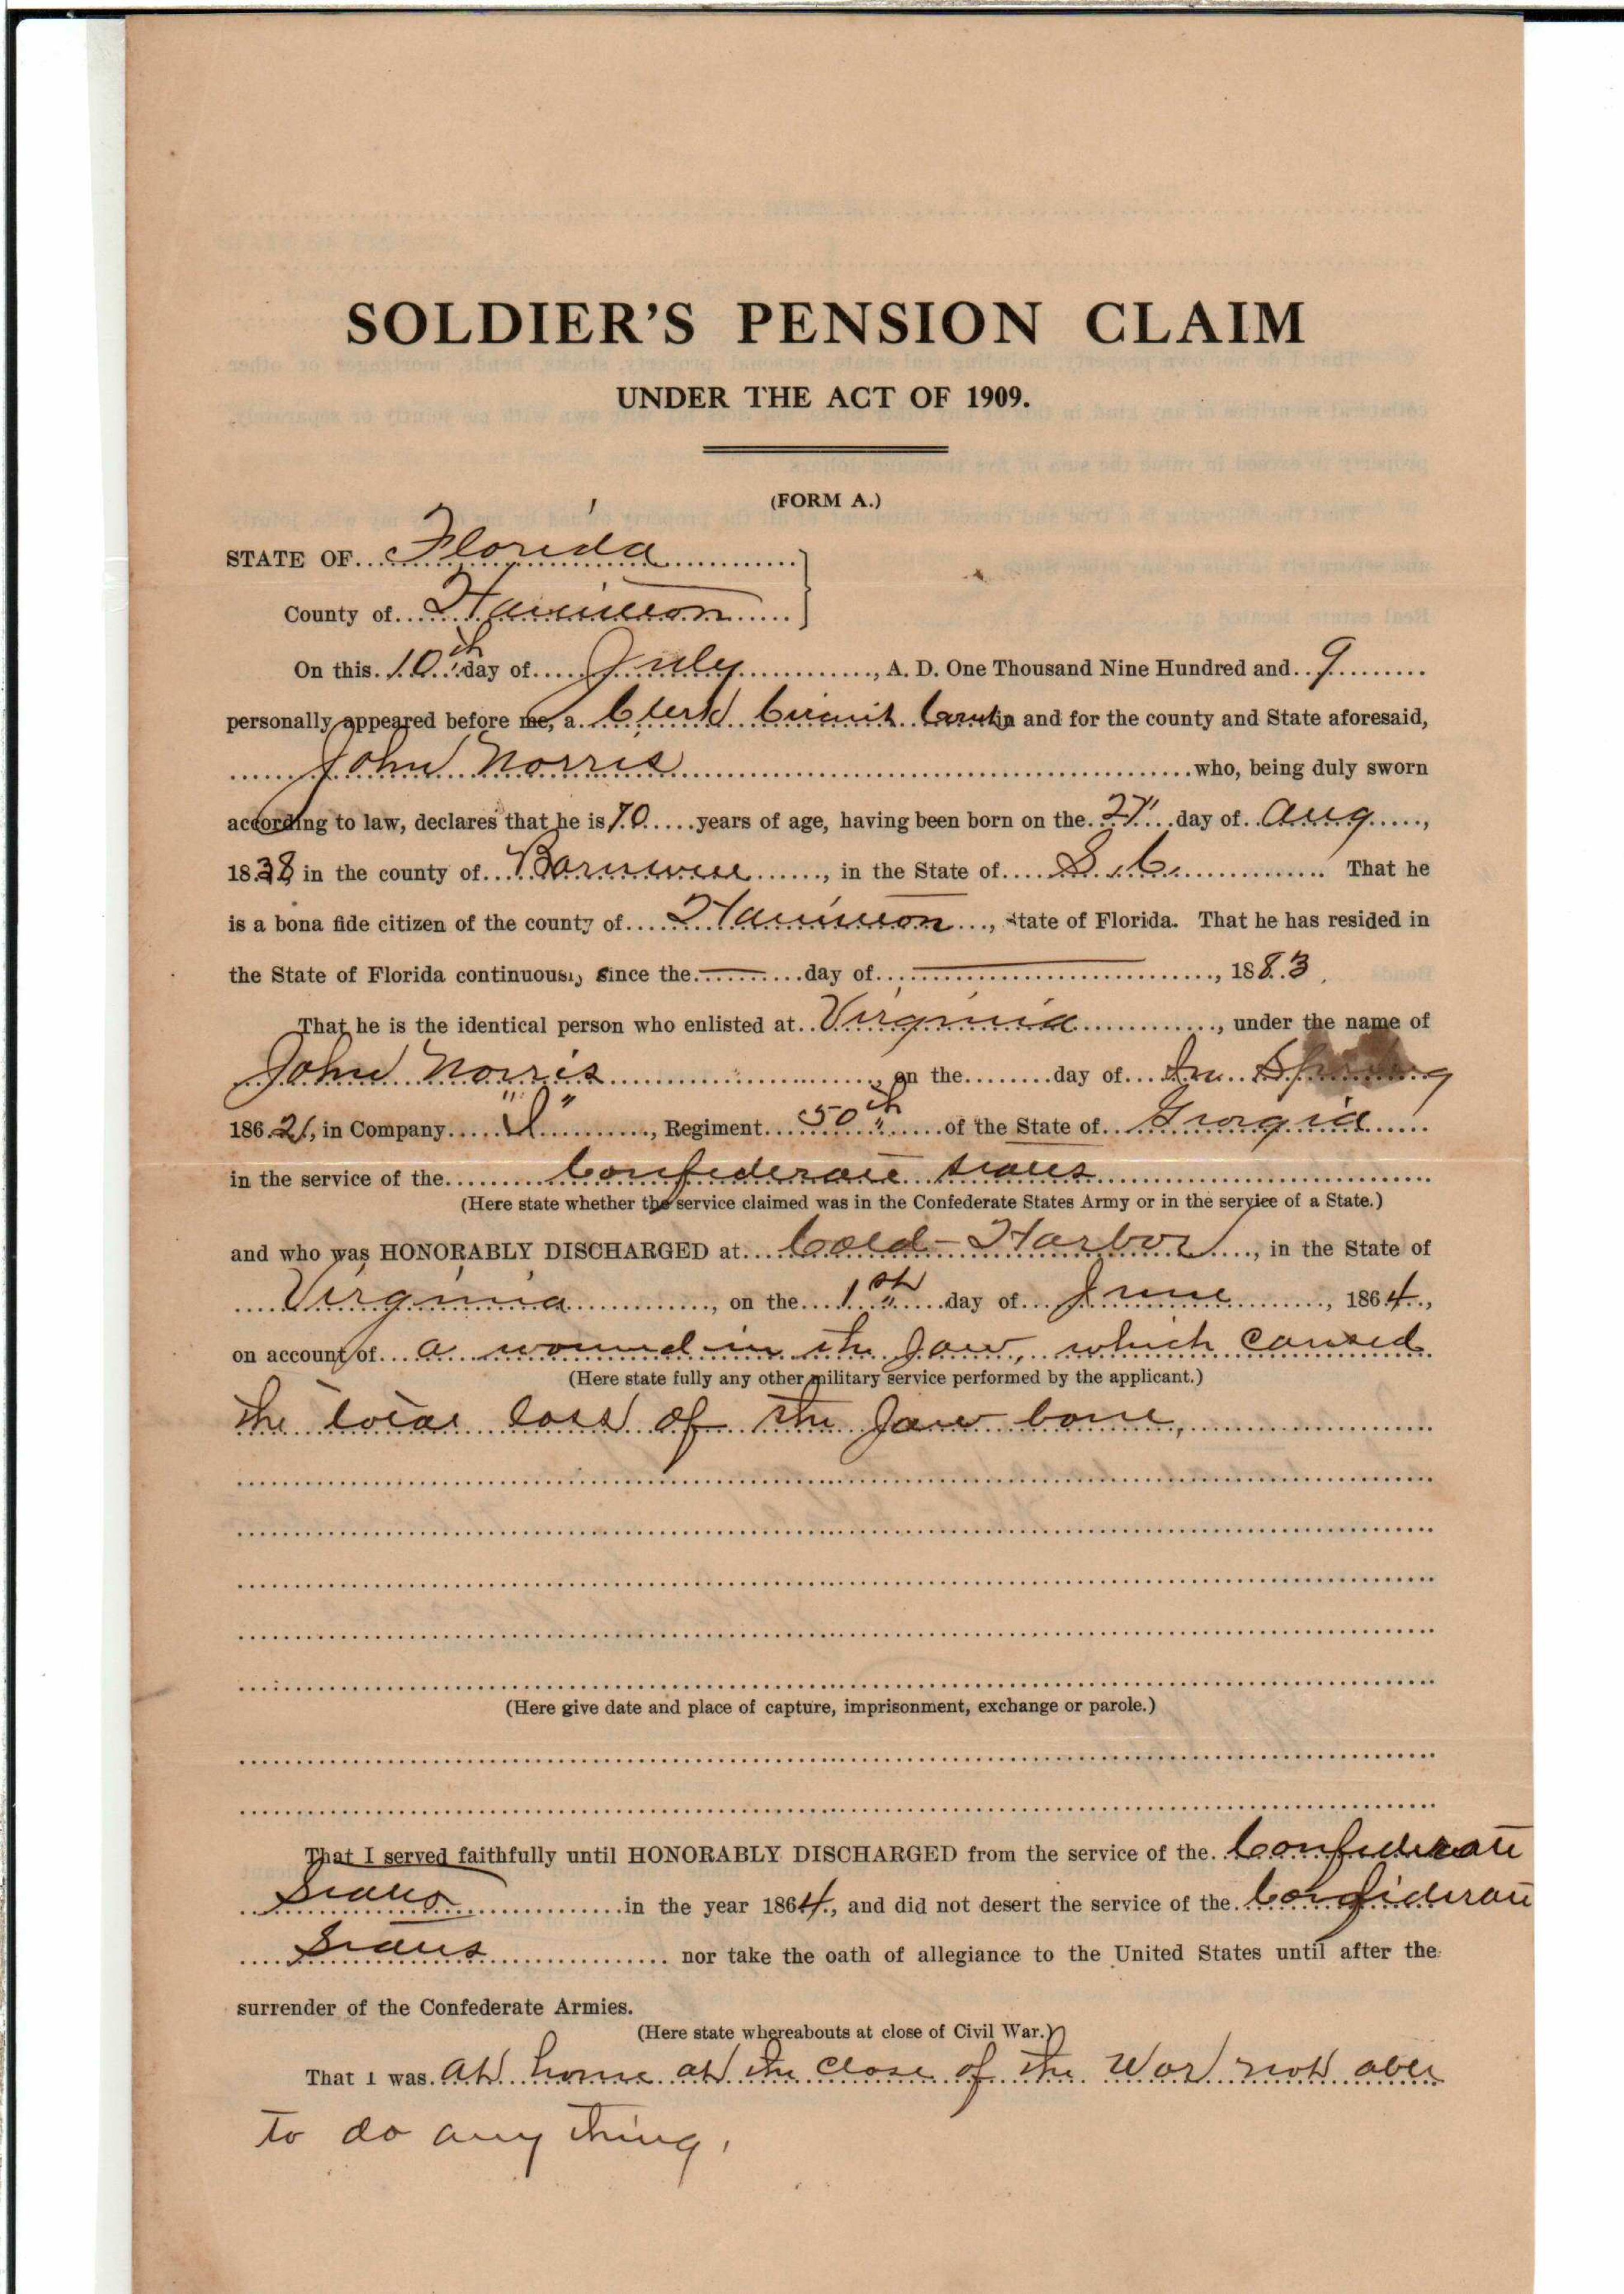 SOLDIER'S PENSION CLAIM
UNDER THE ACT OF 1909.
(FORM A.)
STATE OF Florida
County of Hamilton
On this 10th day of July, A. D. One Thousand Nine Hundred and 9
personally appeared before me, a Clerk Circuit Court in and for the county and State aforesaid,
John Norris who, being duly sworn
according to law, declares that he is 70 years of age, having been born on the day of Aug,
1838 in the county of Barnwell, in the State of S.C. That he
is a bona fide citizen of the county of Hamilton, State of Florida. That he has resided in
the State of Florida continuously since the day of, 1883.
That he is the identical person who enlisted at Virginia, under the name of
John Norris, on the day of In Spring
1862, in Company, Regiment 50th of the State of Georgia
in the service of the Confederate States
(Here state whether the service claimed was in the Confederate States Army or in the service of a State.)
and who was HONORABLY DISCHARGED at Cold-Harbor, in the State of
Virginia, on the 1st day of June, 1864,
on account of a wound in the Jaw, which caused
(Here state fully any other military service performed by the applicant.)
the total loss of the Jaw bone,
(Here give date and place of capture, imprisonment, exchange or parole.)
That I served faithfully until HONORABLY DISCHARGED from the service of the Confederate
States in the year 1864, and did not desert the service of the Confederate
States nor take the oath of allegiance to the United States until after the
surrender of the Confederate Armies.
(Here state whereabouts at close of Civil War.)
That I was at home at the close of the War not able
to do any thing.